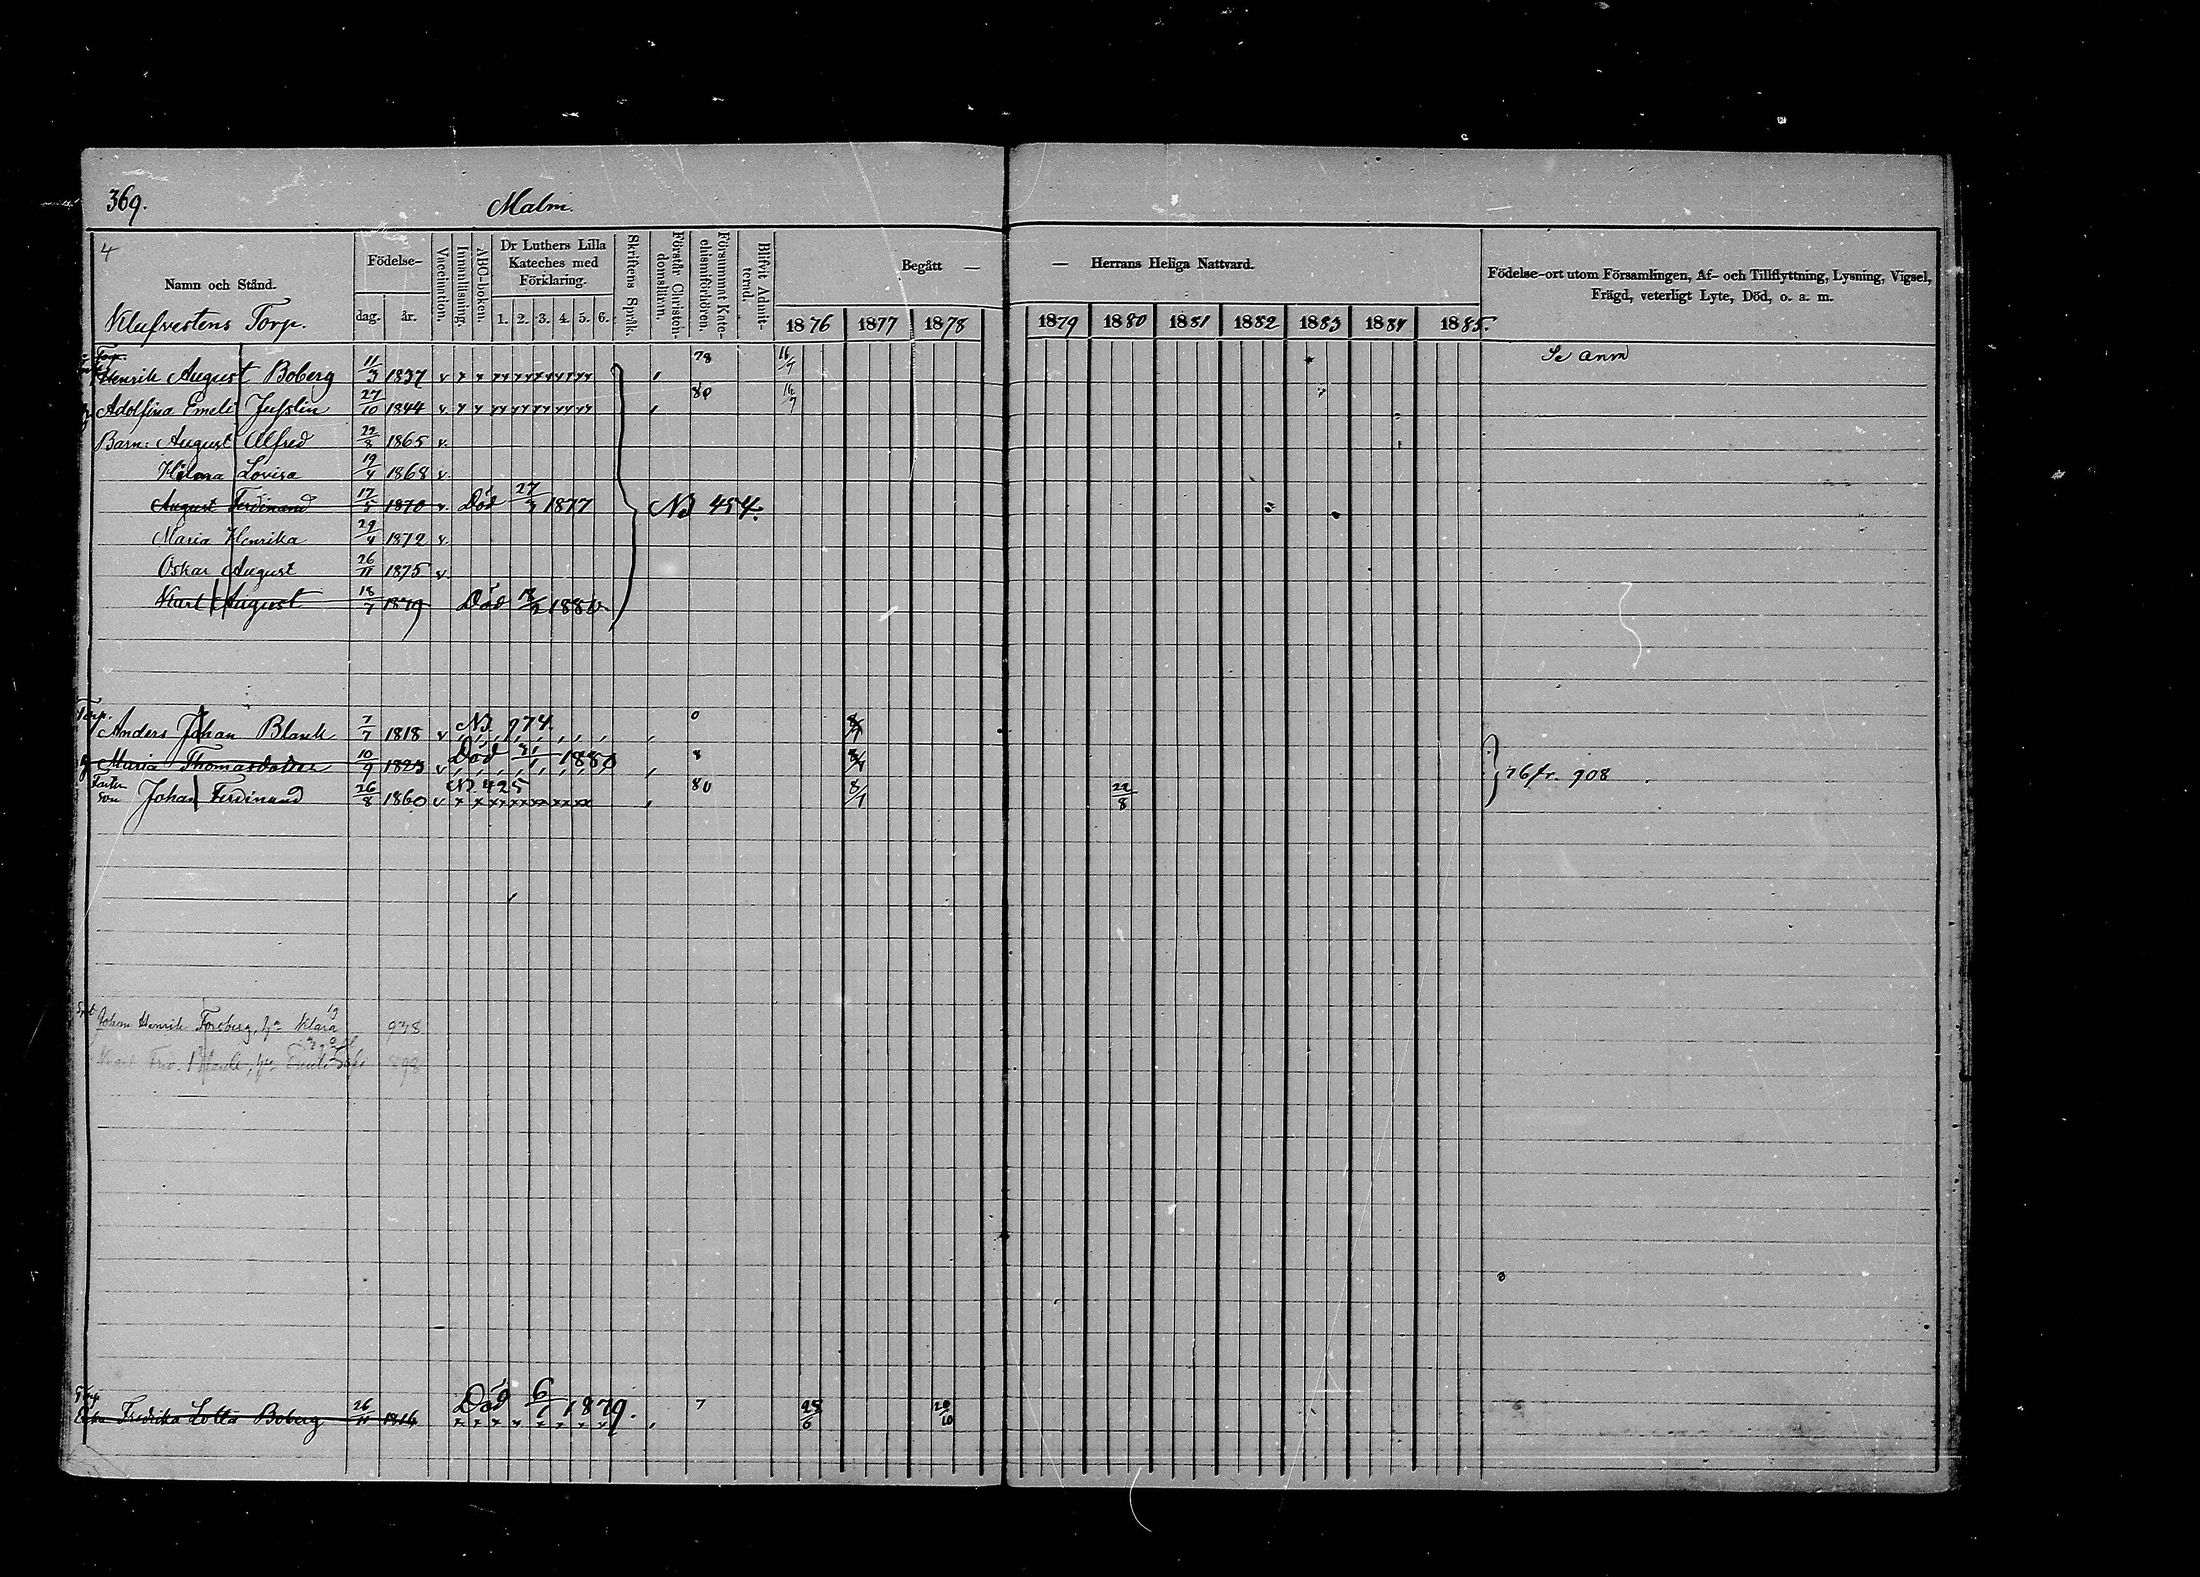 369.
Malm.
4
Namn och Stånd.
Födelse-
dag. år.
Vaccination.
Innanläsning.
ABC-boken.
Dr Luthers Lilla
Kateches med
Förklaring.
1. 2. 3. 4. 5. 6.
Skriftens Språk.
Förstår Christen-
domsläran.
Försummat Kate-
chismiförhören.
Blifvit Admit-
terad.
Begått — — Herrans Heliga Nattvard.
1876 1877 1878 1879 1880 1881 1882 1883 1884 1885.
Födelse-ort utom Församlingen, Af- och Tillflyttning, Lysning, Vigsel,
Frägd, veterligt Lyte, Död, o. a. m.
Klufvestens Torp.
Torp.
Henrik August Boberg 11/3 1837 v 78 16/7 Se anm
Adolfina Emeli 27/10 1844 v 80 16/7
Barn: August Alfred 22/8 1865 v.
Hilma Lovisa 19/4 1868 v.
August Ferdinand 17/5 1870 v. Död 27/3 1877 N3 454.
Maria Henrika 29/4 1872 v.
Oskar August 26/11 1875 v.
Karl August 18/7 1879 Död 18/2 1880
Torp.
Anders Johan Blank 7/7 1818 v N3 974. 0 8/1
Maria Thomasdotter 10/9 1823 v Död 31/1 1880 8 8/1 76 fr. 908
son Johan Ferdinand 26/8 1860 v N 425 80 8/1 22/8
Johan Henrik Forsberg, hu Klara 938
898
Fredrika Lotta Boberg 26/11 1814 Död 6/1 1879. 7 28/6 20/10